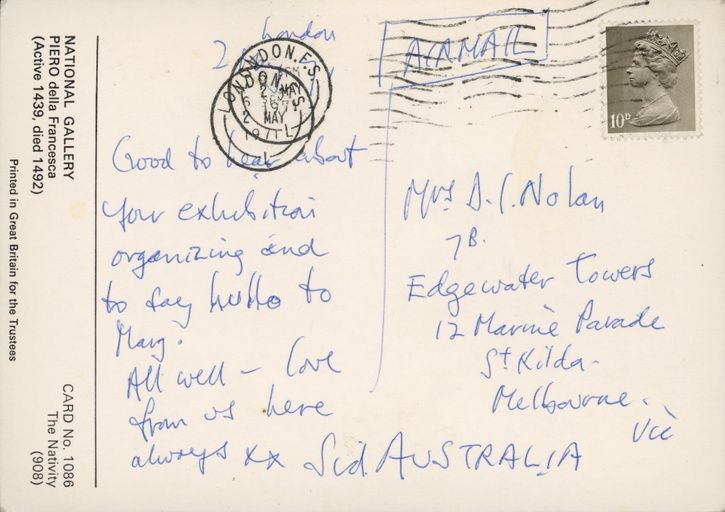 London
Good to hear about
your exhibition
organizing and
to say hullo to
Mary.
All well – love
from us here
always xx Sid
AIRMAIL
10P
Mrs D. C. Nolan
7B.
Edgewater Towers
12 Marine Parade
St Kilda.
Melbourne.
Vic
AUSTRALIA
LONDON. F.S.
MAY
NATIONAL GALLERY
PIERO della Francesca
(Active 1439, died 1492)
Printed in Great Britain for the Trustees
CARD No. 1086
The Nativity
(908)